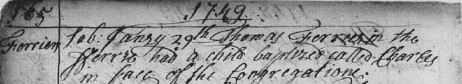 165 1749
Ferrier Feb: Janry 29th Thomas Ferrier in the
Ferrie had a child baptized called Charles
in face of the Congregation